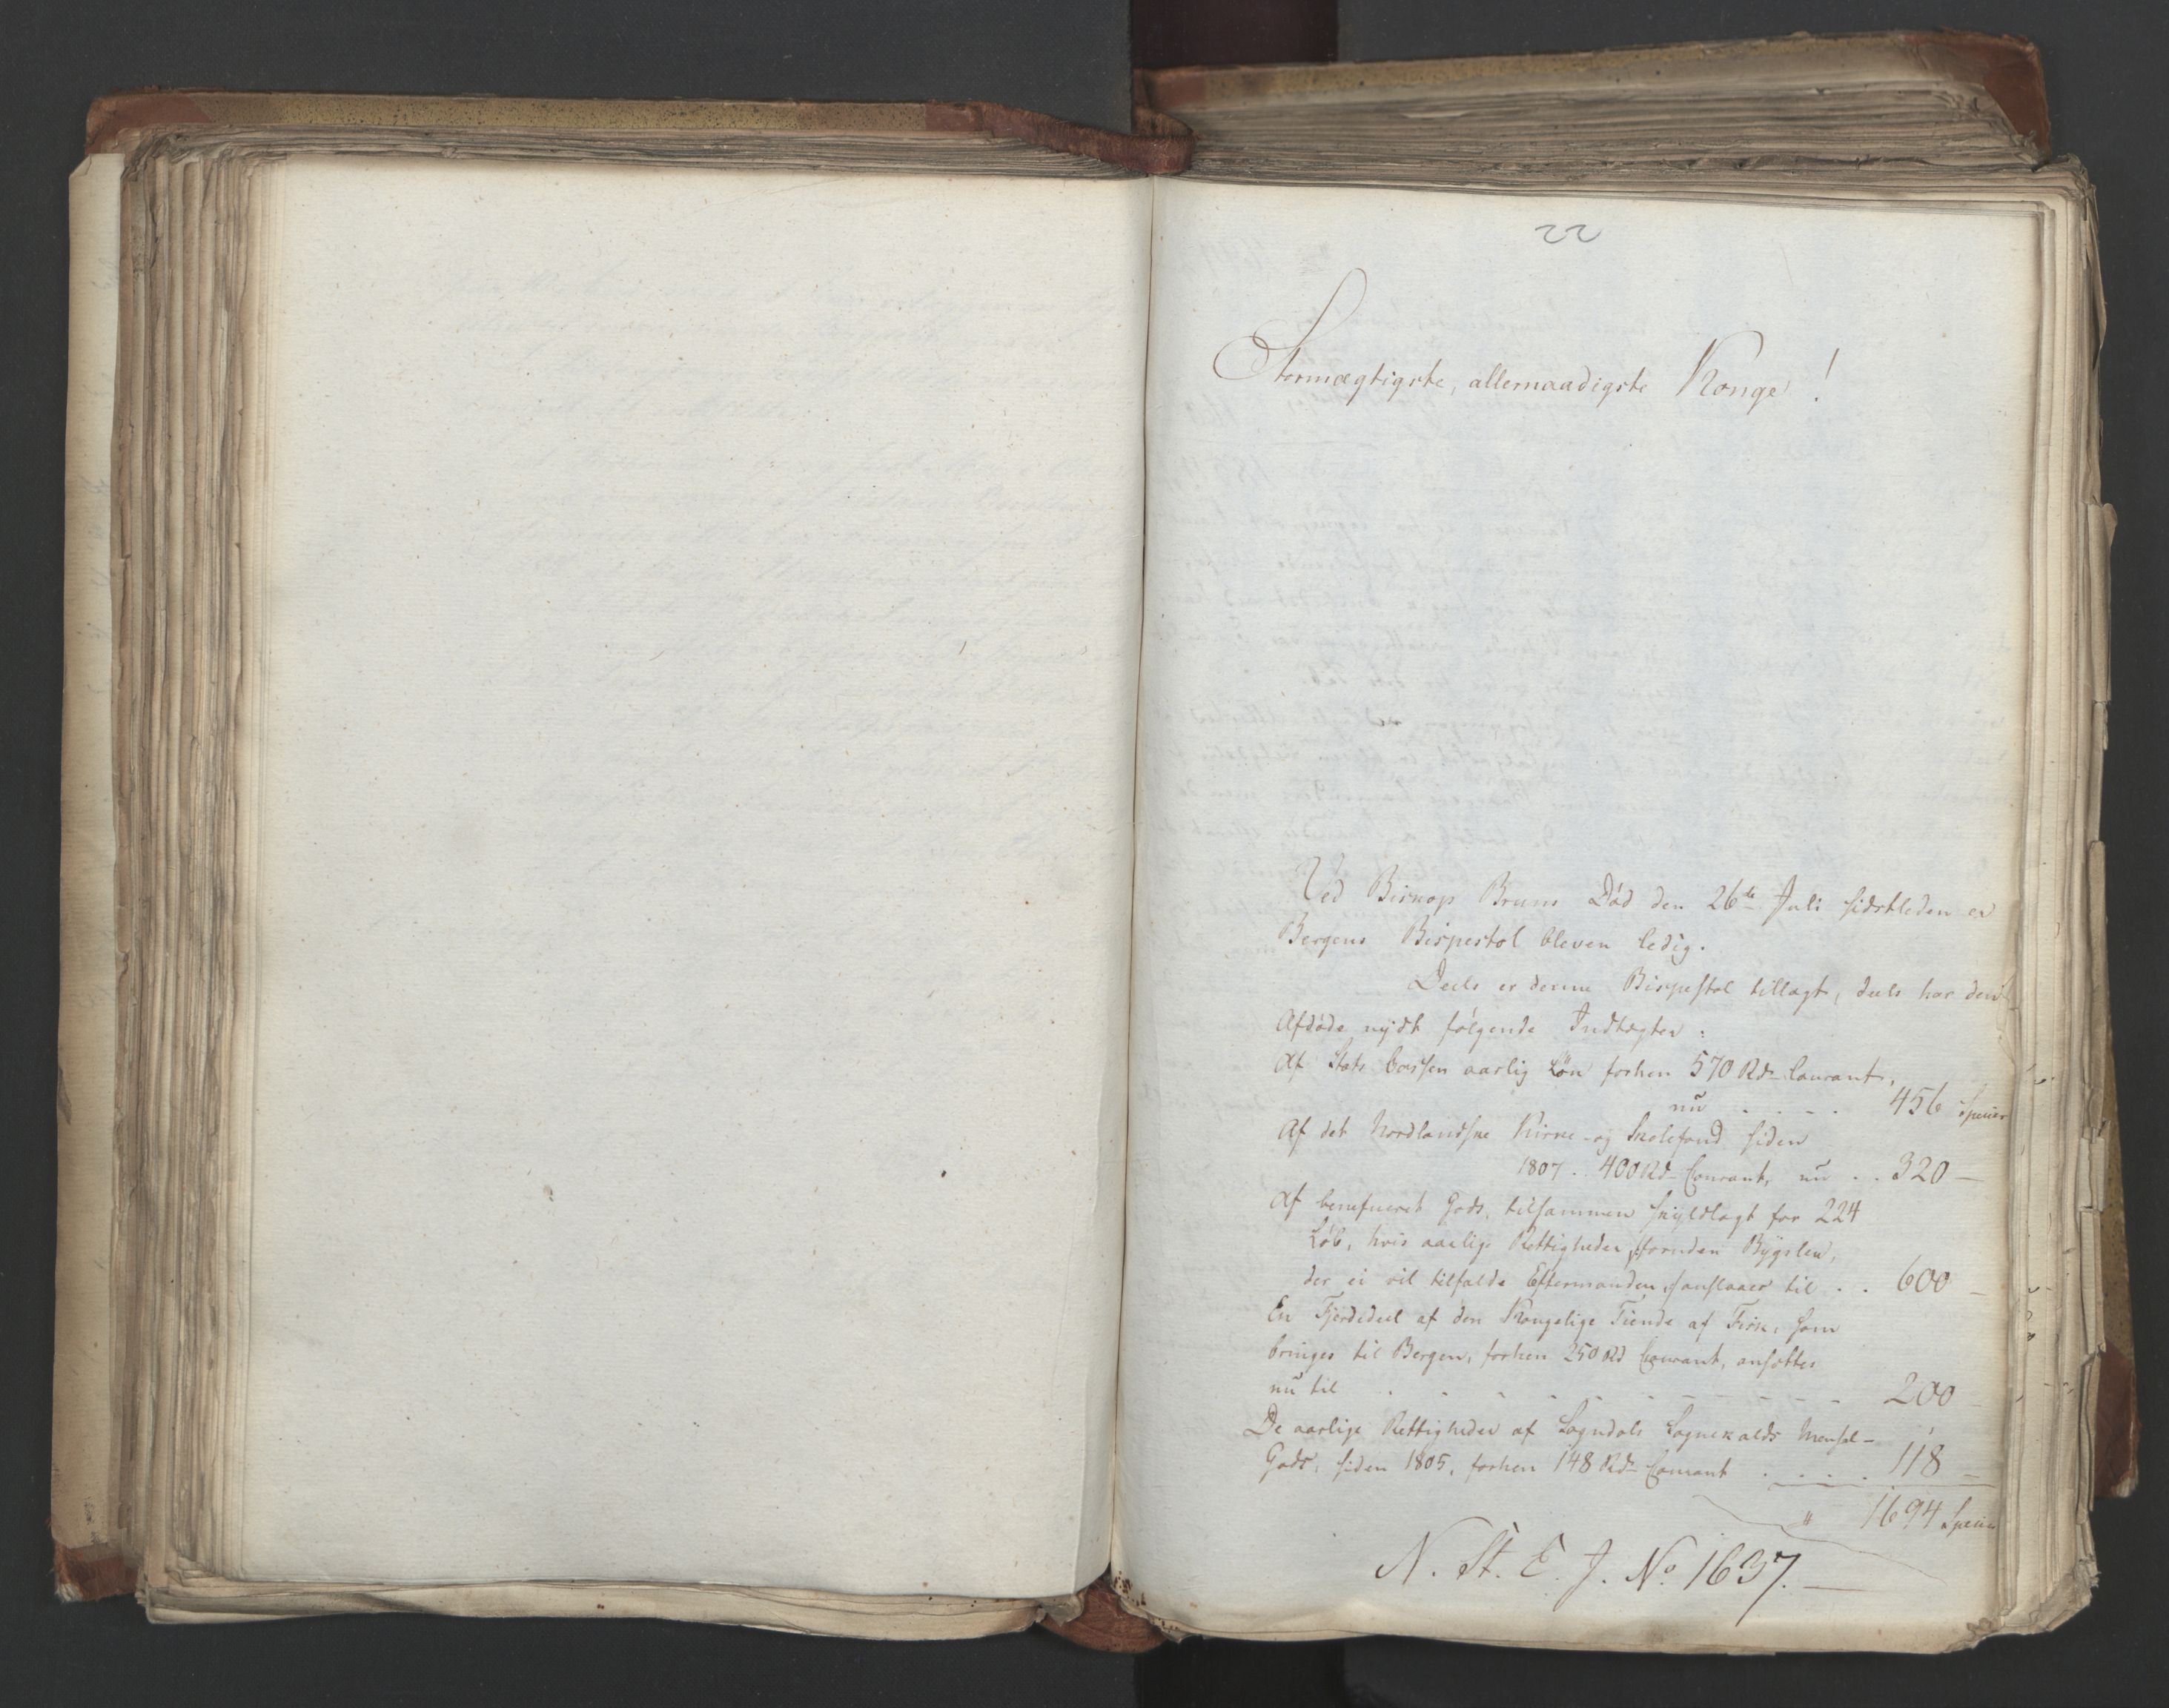 22
Stormægtigste, allernaadigste Konge!
Ved Biskop Bruns Død den 26de Juli sidstleden er
Bergens Bispestol bleven ledig.
Deels er denne Bispestol tillagt, deels har den
Afdøde nydt følgende Indtægter:
Af Stats Cassen aarlig Løn forhen 570 Rd Courant,
nu . . . . 456 Species
Af det Nordlandske Kirke- og Skolefond siden
1807 . 400 Rd Courant, nu . . 320 —
Af beneficeret Gods, tilsammen skyldlagt for 224
Løb, hvis aarlige Rettigheder, foruden Bygslen,
der ei vil tilfalde Eftermanden, anslaaes til . . 600 —
En Fjerdedeel af den Kongelige Tiende af Fisk, som
bringes til Bergen, forhen 250 Rd Courant, ansættes
nu til . . . . . . . . . 200 —
De aarlige Rettigheder af Sogndals Sognekalds Mensal-
Gods, siden 1805, forhen 148 Rd Courant . . . . 118 —
" 1694 Species
N. St. E. J. No. 1637. —